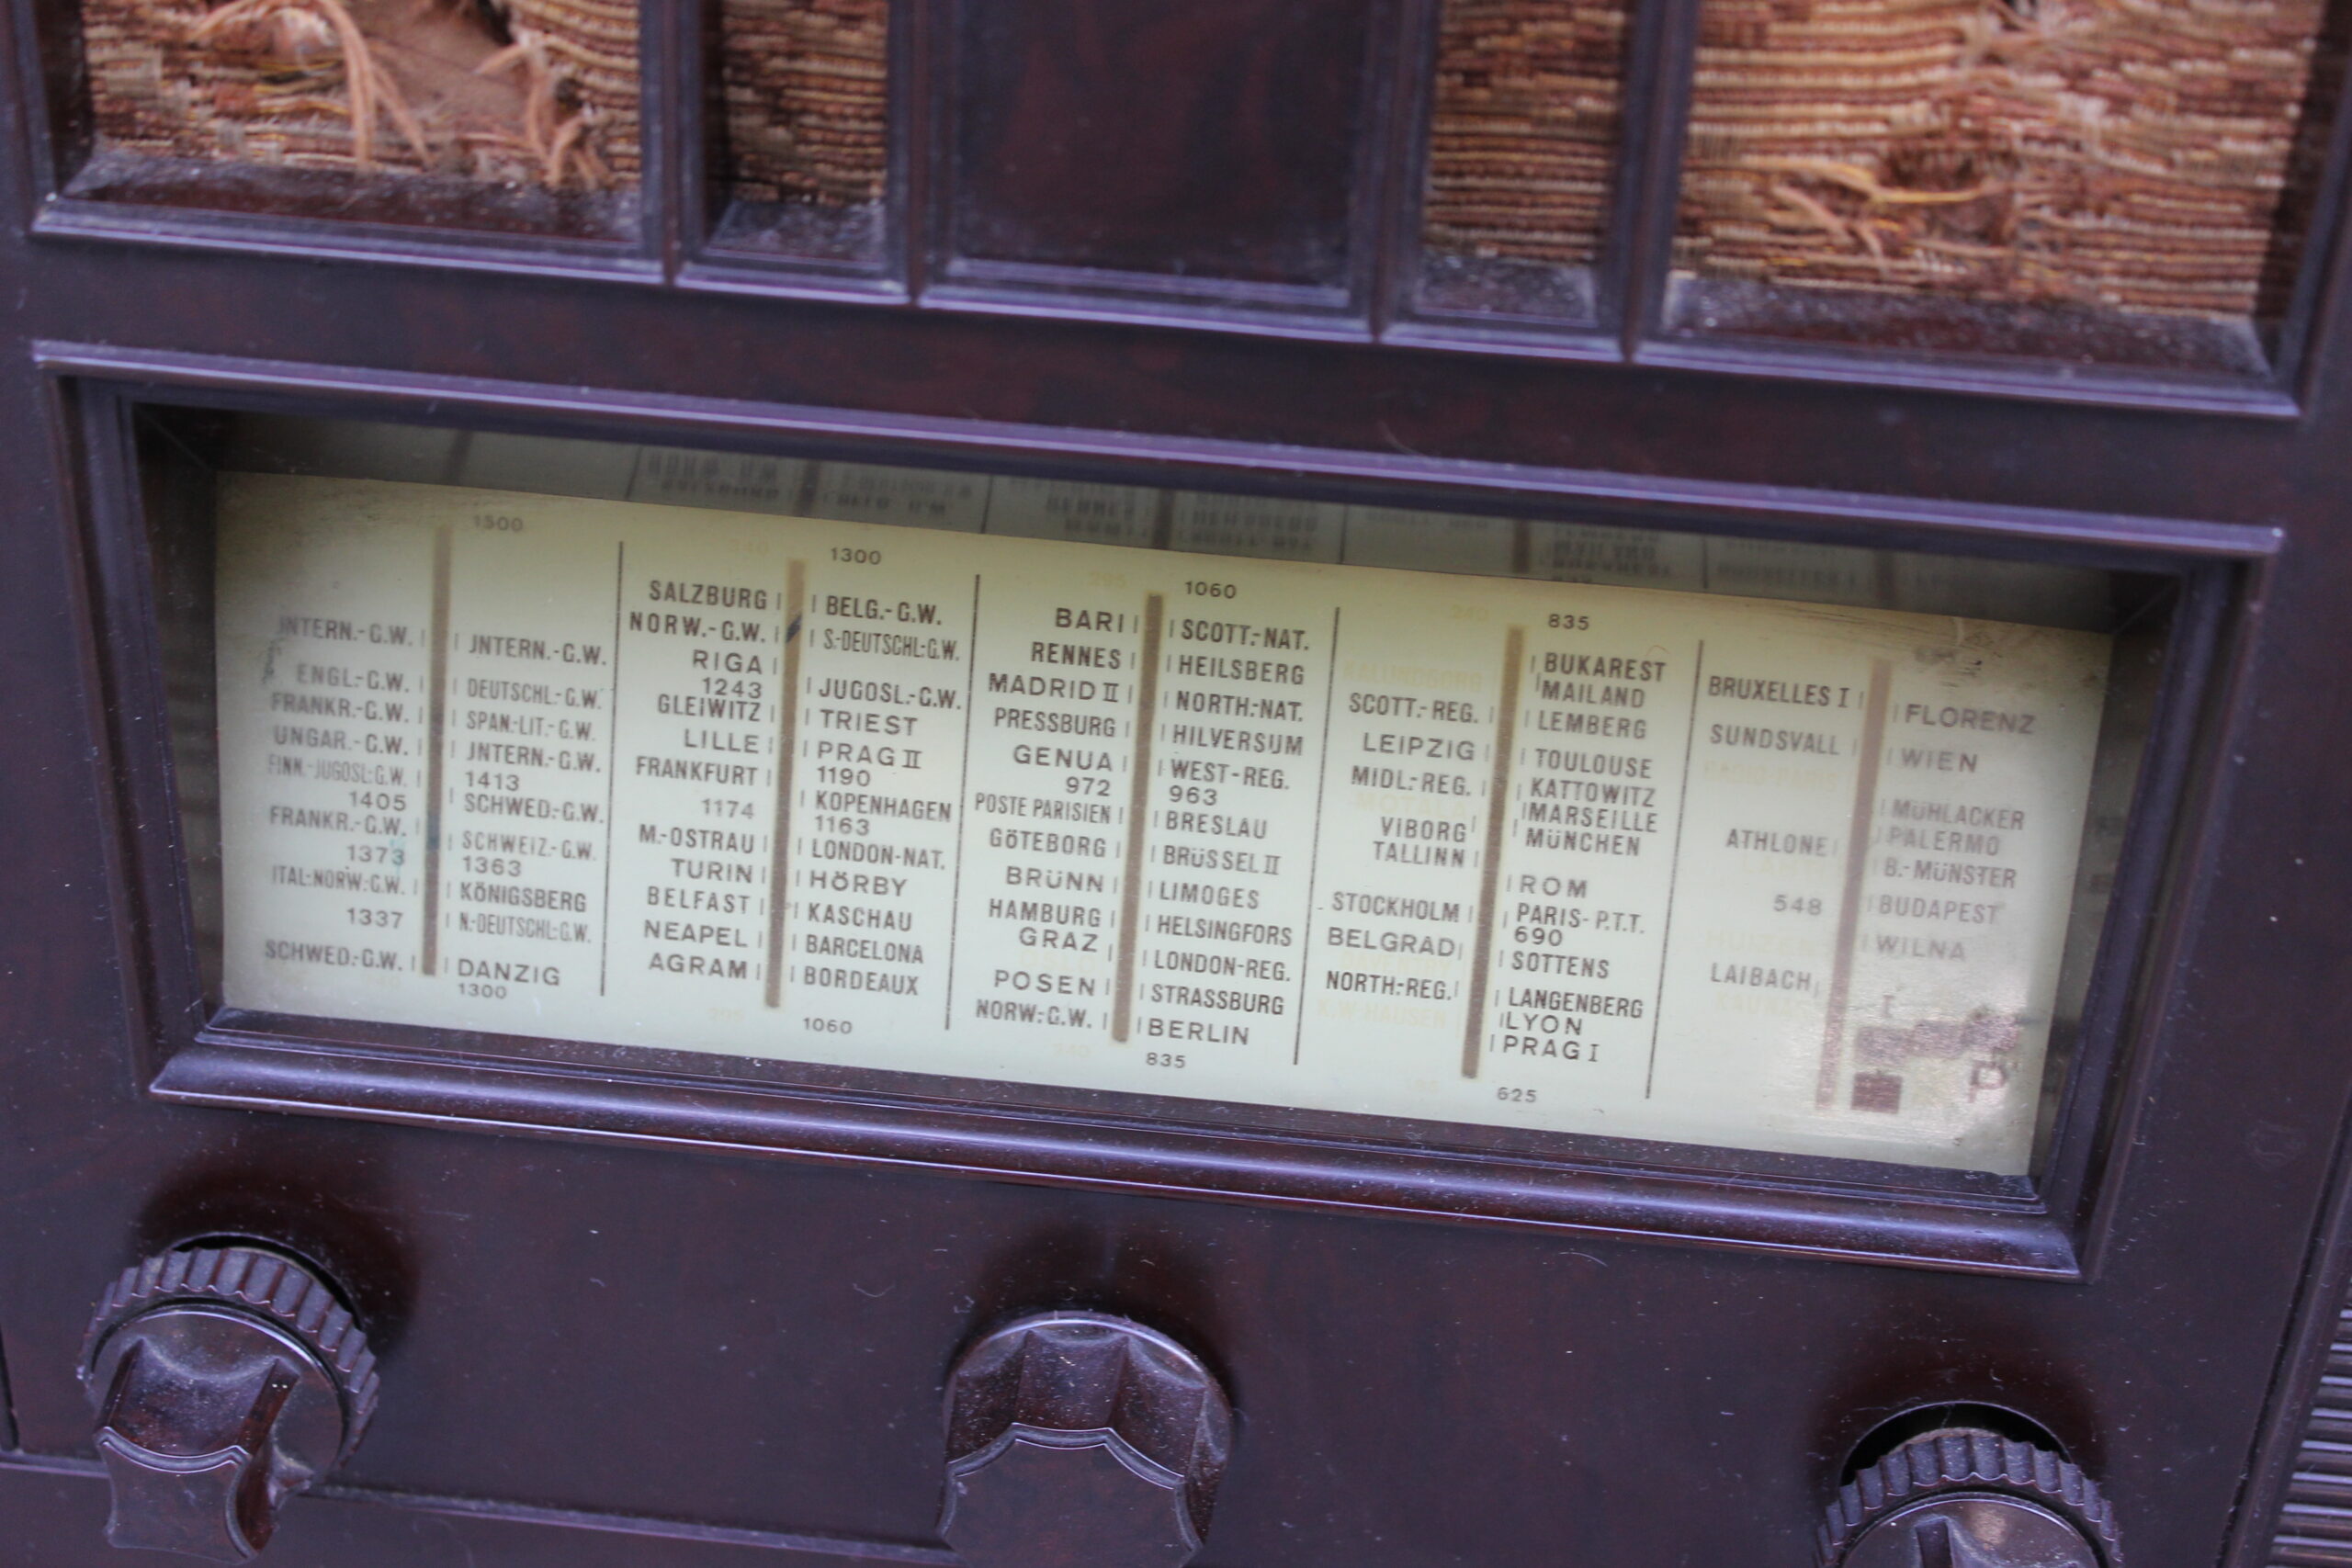 1500
JNTERN.-G.W.
ENGL.-G.W.
FRANKR.-G.W.
UNGAR.-G.W.
FINN.-JUGOSL.-G.W.
1405
FRANKR.-G.W.
1373
ITAL.-NORW.-G.W.
1337
SCHWED.-G.W.
JNTERN.-G.W.
DEUTSCHL.-G.W.
SPAN.-LIT.-G.W.
JNTERN.-G.W.
1413
SCHWED.-G.W.
SCHWEIZ.-G.W.
1363
KÖNIGSBERG
N.-DEUTSCHL.-G.W.
DANZIG
1300
SALZBURG
NORW.-G.W.
RIGA
1243
GLEIWITZ
LILLE
FRANKFURT
1174
M.-OSTRAU
TURIN
BELFAST
NEAPEL
AGRAM
1300
BELG.-G.W.
S.-DEUTSCHL.-G.W.
JUGOSL.-G.W.
TRIEST
PRAG II
1190
KOPENHAGEN
1163
LONDON-NAT.
HÖRBY
KASCHAU
BARCELONA
BORDEAUX
1060
BARI
RENNES
MADRID II
PRESSBURG
GENUA
972
POSTE PARISIEN
GÖTEBORG
BRÜNN
HAMBURG
GRAZ
POSEN
NORW.-G.W.
1060
SCOTT.-NAT.
HEILSBERG
NORTH.-NAT.
HILVERSUM
WEST-REG.
963
BRESLAU
BRÜSSEL II
LIMOGES
HELSINGFORS
LONDON-REG.
STRASSBURG
BERLIN
835
SCOTT.-REG.
LEIPZIG
MIDL.-REG.
VIBORG
TALLINN
STOCKHOLM
BELGRAD
NORTH.-REG.
835
BUKAREST
MAILAND
LEMBERG
TOULOUSE
KATTOWITZ
MARSEILLE
MÜNCHEN
ROM
PARIS-P.T.T.
690
SOTTENS
LANGENBERG
LYON
PRAG I
625
BRUXELLES I
SUNDSVALL
ATHLONE
548
LAIBACH
FLORENZ
WIEN
MÜHLACKER
PALERMO
B.-MÜNSTER
BUDAPEST
WILNA